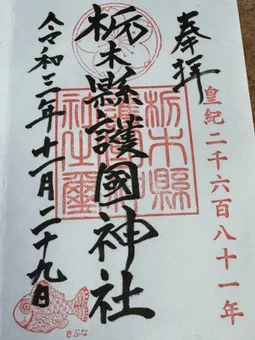 奉拝
皇紀二千六百八十一年
栃木縣護國神社
令和三年十一月二十九日
きぶな